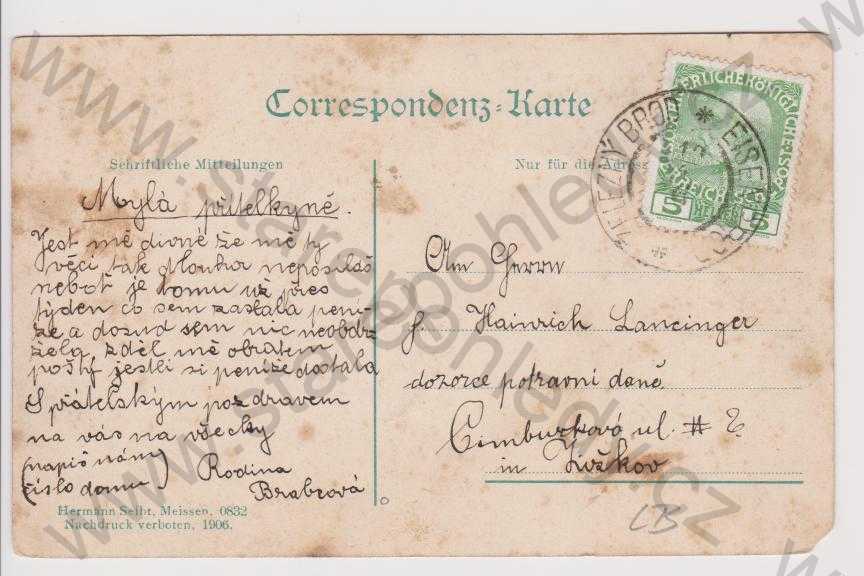 Correspondenz-Karte
Schriftliche Mitteilungen
Nur für die Adresse
Mylá přítelkyně.
Jest mě divné že mě ty
věci tak dlouho neposíláš
neboť je tomu už přes
týden co sem zaslala pení-
ze a dozud sem nic neobdr-
žela, zděl mě obratem
pošty jestli si peníze dostala
S přátelským pozdravem
na vás na všecky
(napiš nám)
(číslo domu)
Rodina
Brabcová
Hermann Seibt, Meissen, 0832
Nachdruck verboten, 1906.
ŽELEZNÝ BROD * EISENBROD
5 5
An Herrn
H. Hainrich Lancinger
dozorce potravní daně
Cimburková ul. # 2
in Žižkov
LB
www.starepohledy.cz